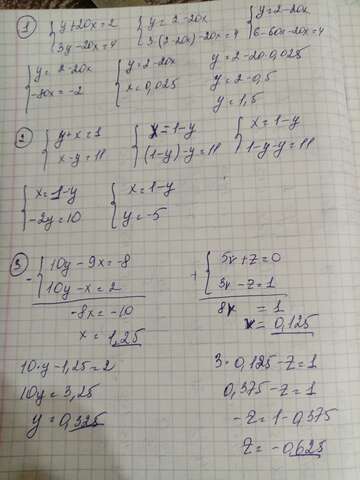 1 { y+20x=2
3y-20x=4
{ y=2-20x
3(2-20x)-20x=4
{ y=2-20x
6-60x-20x=4
{ y=2-20x
-80x=-2
{ y=2-20x
x=0,025
y=2-20·0,025
y=2-0,5
y=1,5
2 { y+x=1
x-y=11
{ x=1-y
(1-y)-y=11
{ x=1-y
1-y-y=11
{ x=1-y
-2y=10
{ x=1-y
y=-5
3 - { 10y-9x=-8
10y-x=2
-8x=-10
x=1,25
10·y-1,25=2
10y=3,25
y=0,325
+ { 5x+z=0
3x-z=1
8x=1
x=0,125
3·0,125-z=1
0,375-z=1
-z=1-0,375
z=-0,625